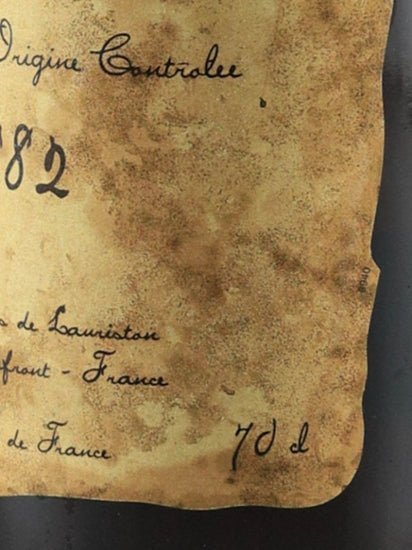 Origine Contrôlée
82
s de Lauriston
front - France
de France
70 cl